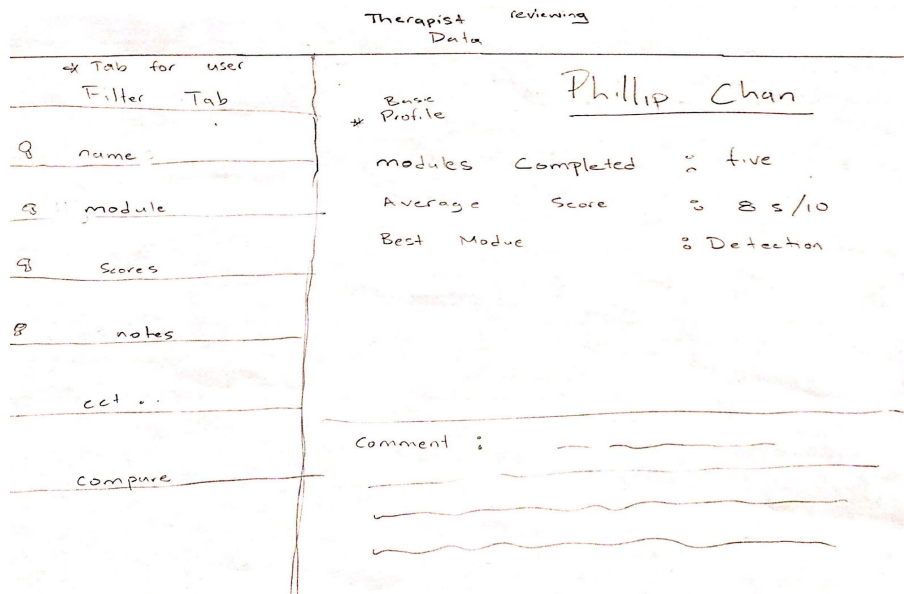 Therapist reviewing
Data
* Tab for user
Filter Tab
8 name :
8 module
8 Scores
8 notes
ect ..
compare
Phillip Chan
Base
* Profile
modules Completed : five
Average Score : 8 5/10
Best Modue : Detection
Comment :